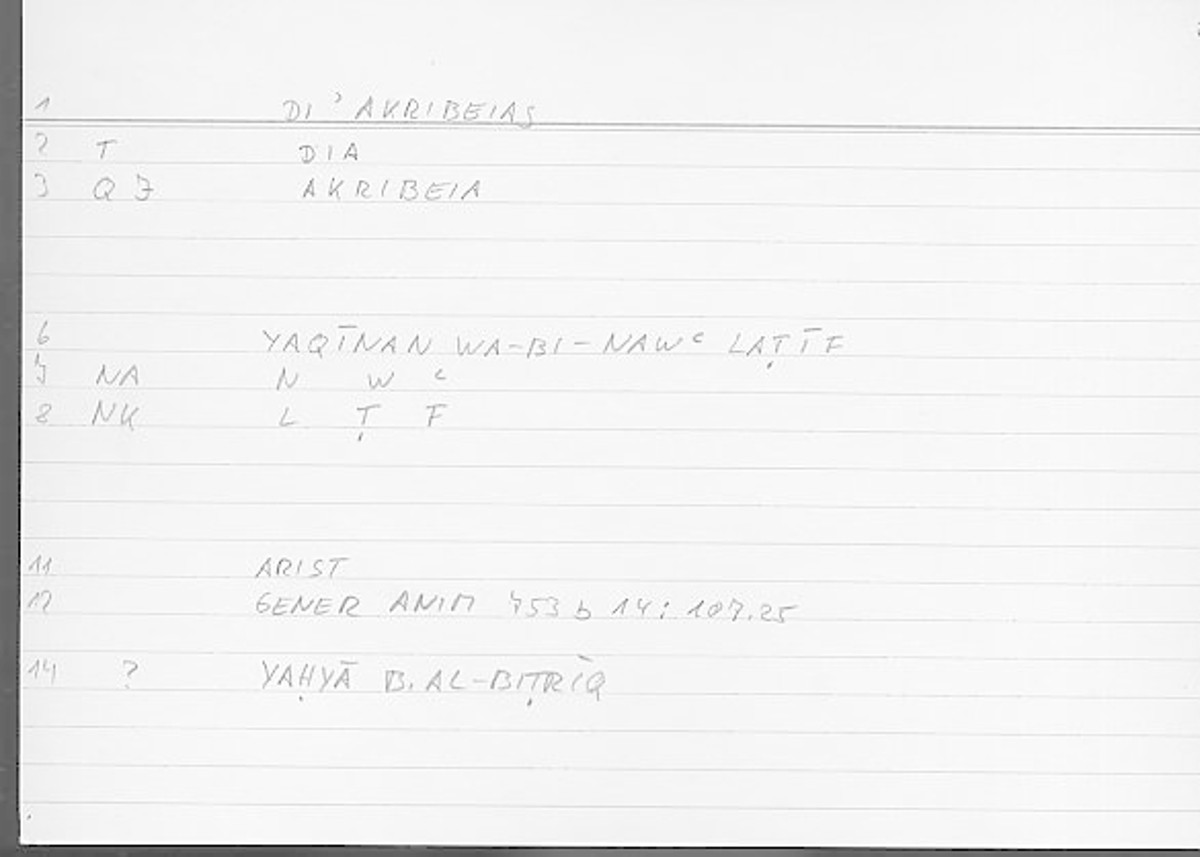 1 DI ' AKRIBEIAS
2 T DIA
3 Q J AKRIBEIA
6 YAQĪNAN WA-BI-NAWᶜ LAṬĪF
7 NA N W ᶜ
8 NK L Ṭ F
11 ARIST
12 GENER ANIM 753 b 14 : 107.25
14 ? YAḤYĀ B. AL-BIṬRĪQ